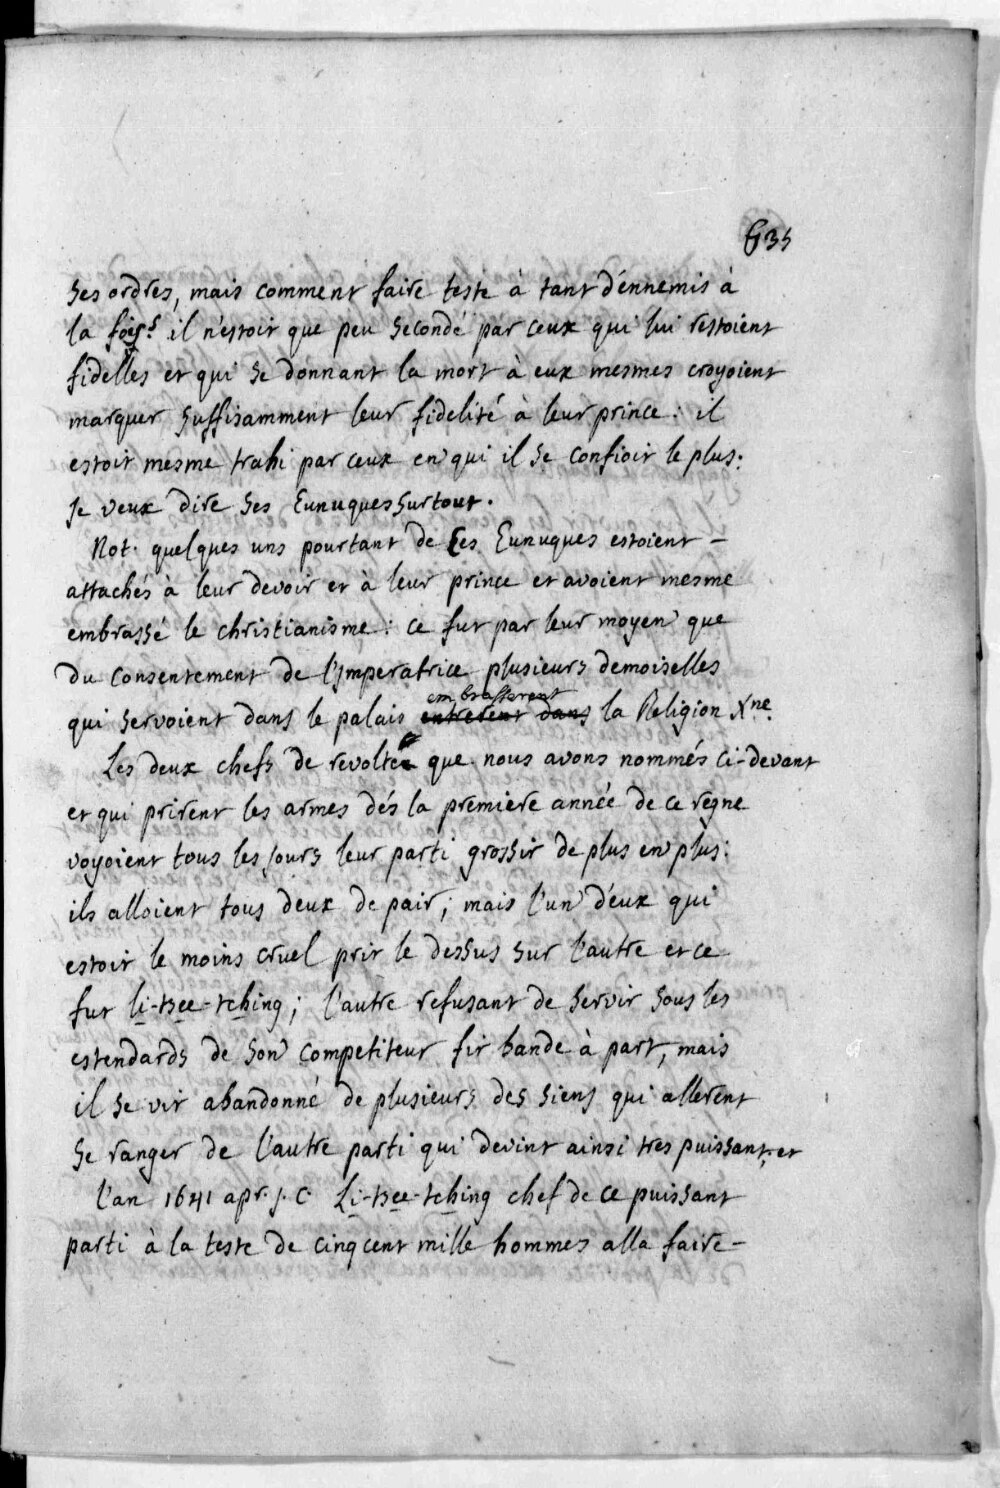 635
ses ordres, mais comment faire teste à tant d'énnemis à
la fois? il n'estoit que peu secondé par ceux qui lui restoient
fidelles et qui se donnant la mort à eux mesmes croyoient
marquer suffisamment leur fidelité à leur prince: il
estoit mesme trahi par ceux en qui il se confioit le plus:
je veux dire ses Eunuques surtout.
Not. quelques uns pourtant de ces Eunuques estoient –
attachés à leur devoir et à leur prince et avoient mesme
embrassé le christianisme: ce fut par leur moyen que
du consentement de l'jmperatrice plusieurs demoiselles
embrasserent
qui servoient dans le palais entrerent dans la Religion Xne.
Les deux chefs de revolte que nous avons nommés ci-devant
et qui prirent les armes dés la premiere année de ce regne
voyoient tous les jours leur parti grossir de plus en plus:
ils alloient tous deux de pair; mais l'un d'eux qui
estoit le moins cruel prit le dessus sur l'autre et ce
fut li-tsee-tching; l'autre refusant de servir sous les
estendards de son competiteur fit bande à part, mais
il se vit abandonné de plusieurs des siens qui allerent
se ranger de l'autre parti qui devint ainsi tres puissant. et
l'an 1641 apr. j. C. Li-tsee-tching chef de ce puissant
parti à la teste de cinq cent mille hommes alla faire –